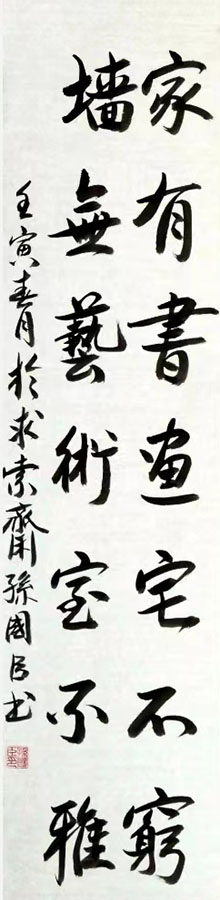 家有書画宅不窮
墙無藝術室不雅
壬寅春月於求索齋孫國良書